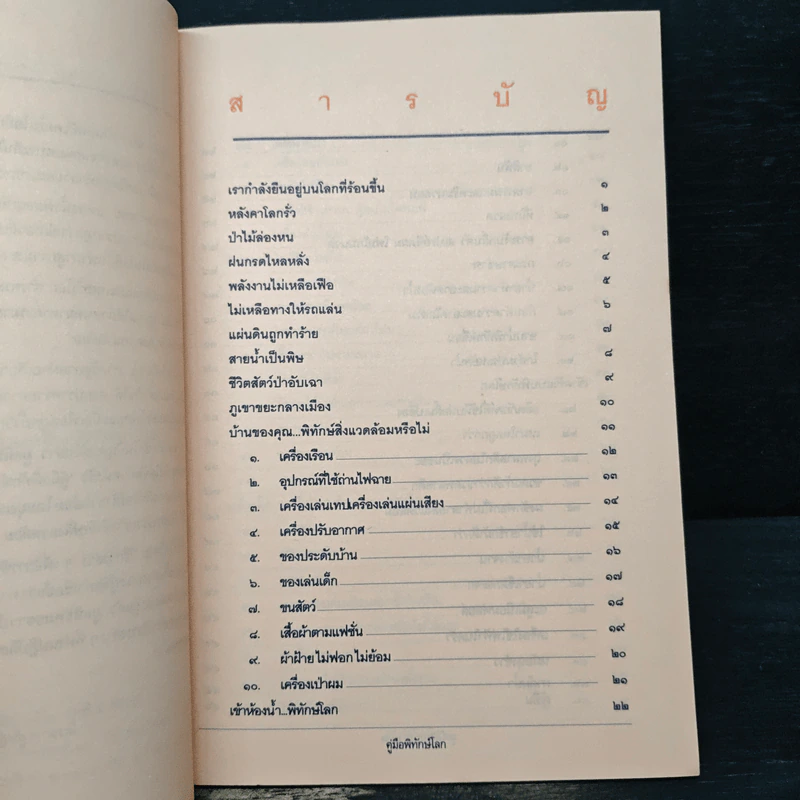 ส า ร บั ญ
เรากำลังยืนอยู่บนโลกที่ร้อนขึ้น ๑
หลังคาโลกรั่ว ๒
ป่าไม้ล่องหน ๓
ฝนกรดไหลหลั่ง ๔
พลังงานไม่เหลือเฟือ ๕
ไม่เหลือทางให้รถแล่น ๖
แผ่นดินถูกทำร้าย ๗
สายน้ำเป็นพิษ ๘
ชีวิตสัตว์ป่าอับเฉา ๙
ภูเขาขยะกลางเมือง ๑๐
บ้านของคุณ...พิทักษ์สิ่งแวดล้อมหรือไม่ ๑๑
๑. เครื่องเรือน ๑๒
๒. อุปกรณ์ที่ใช้ถ่านไฟฉาย ๑๓
๓. เครื่องเล่นเทปเครื่องเล่นแผ่นเสียง ๑๔
๔. เครื่องปรับอากาศ ๑๕
๕. ของประดับบ้าน ๑๖
๖. ของเล่นเด็ก ๑๗
๗. ขนสัตว์ ๑๘
๘. เสื้อผ้าตามแฟชั่น ๑๙
๙. ผ้าฝ้ายไม่ฟอกไม่ย้อม ๒๐
๑๐. เครื่องเป่าผม ๒๑
เข้าห้องน้ำ...พิทักษ์โลก ๒๒
คู่มือพิทักษ์โลก